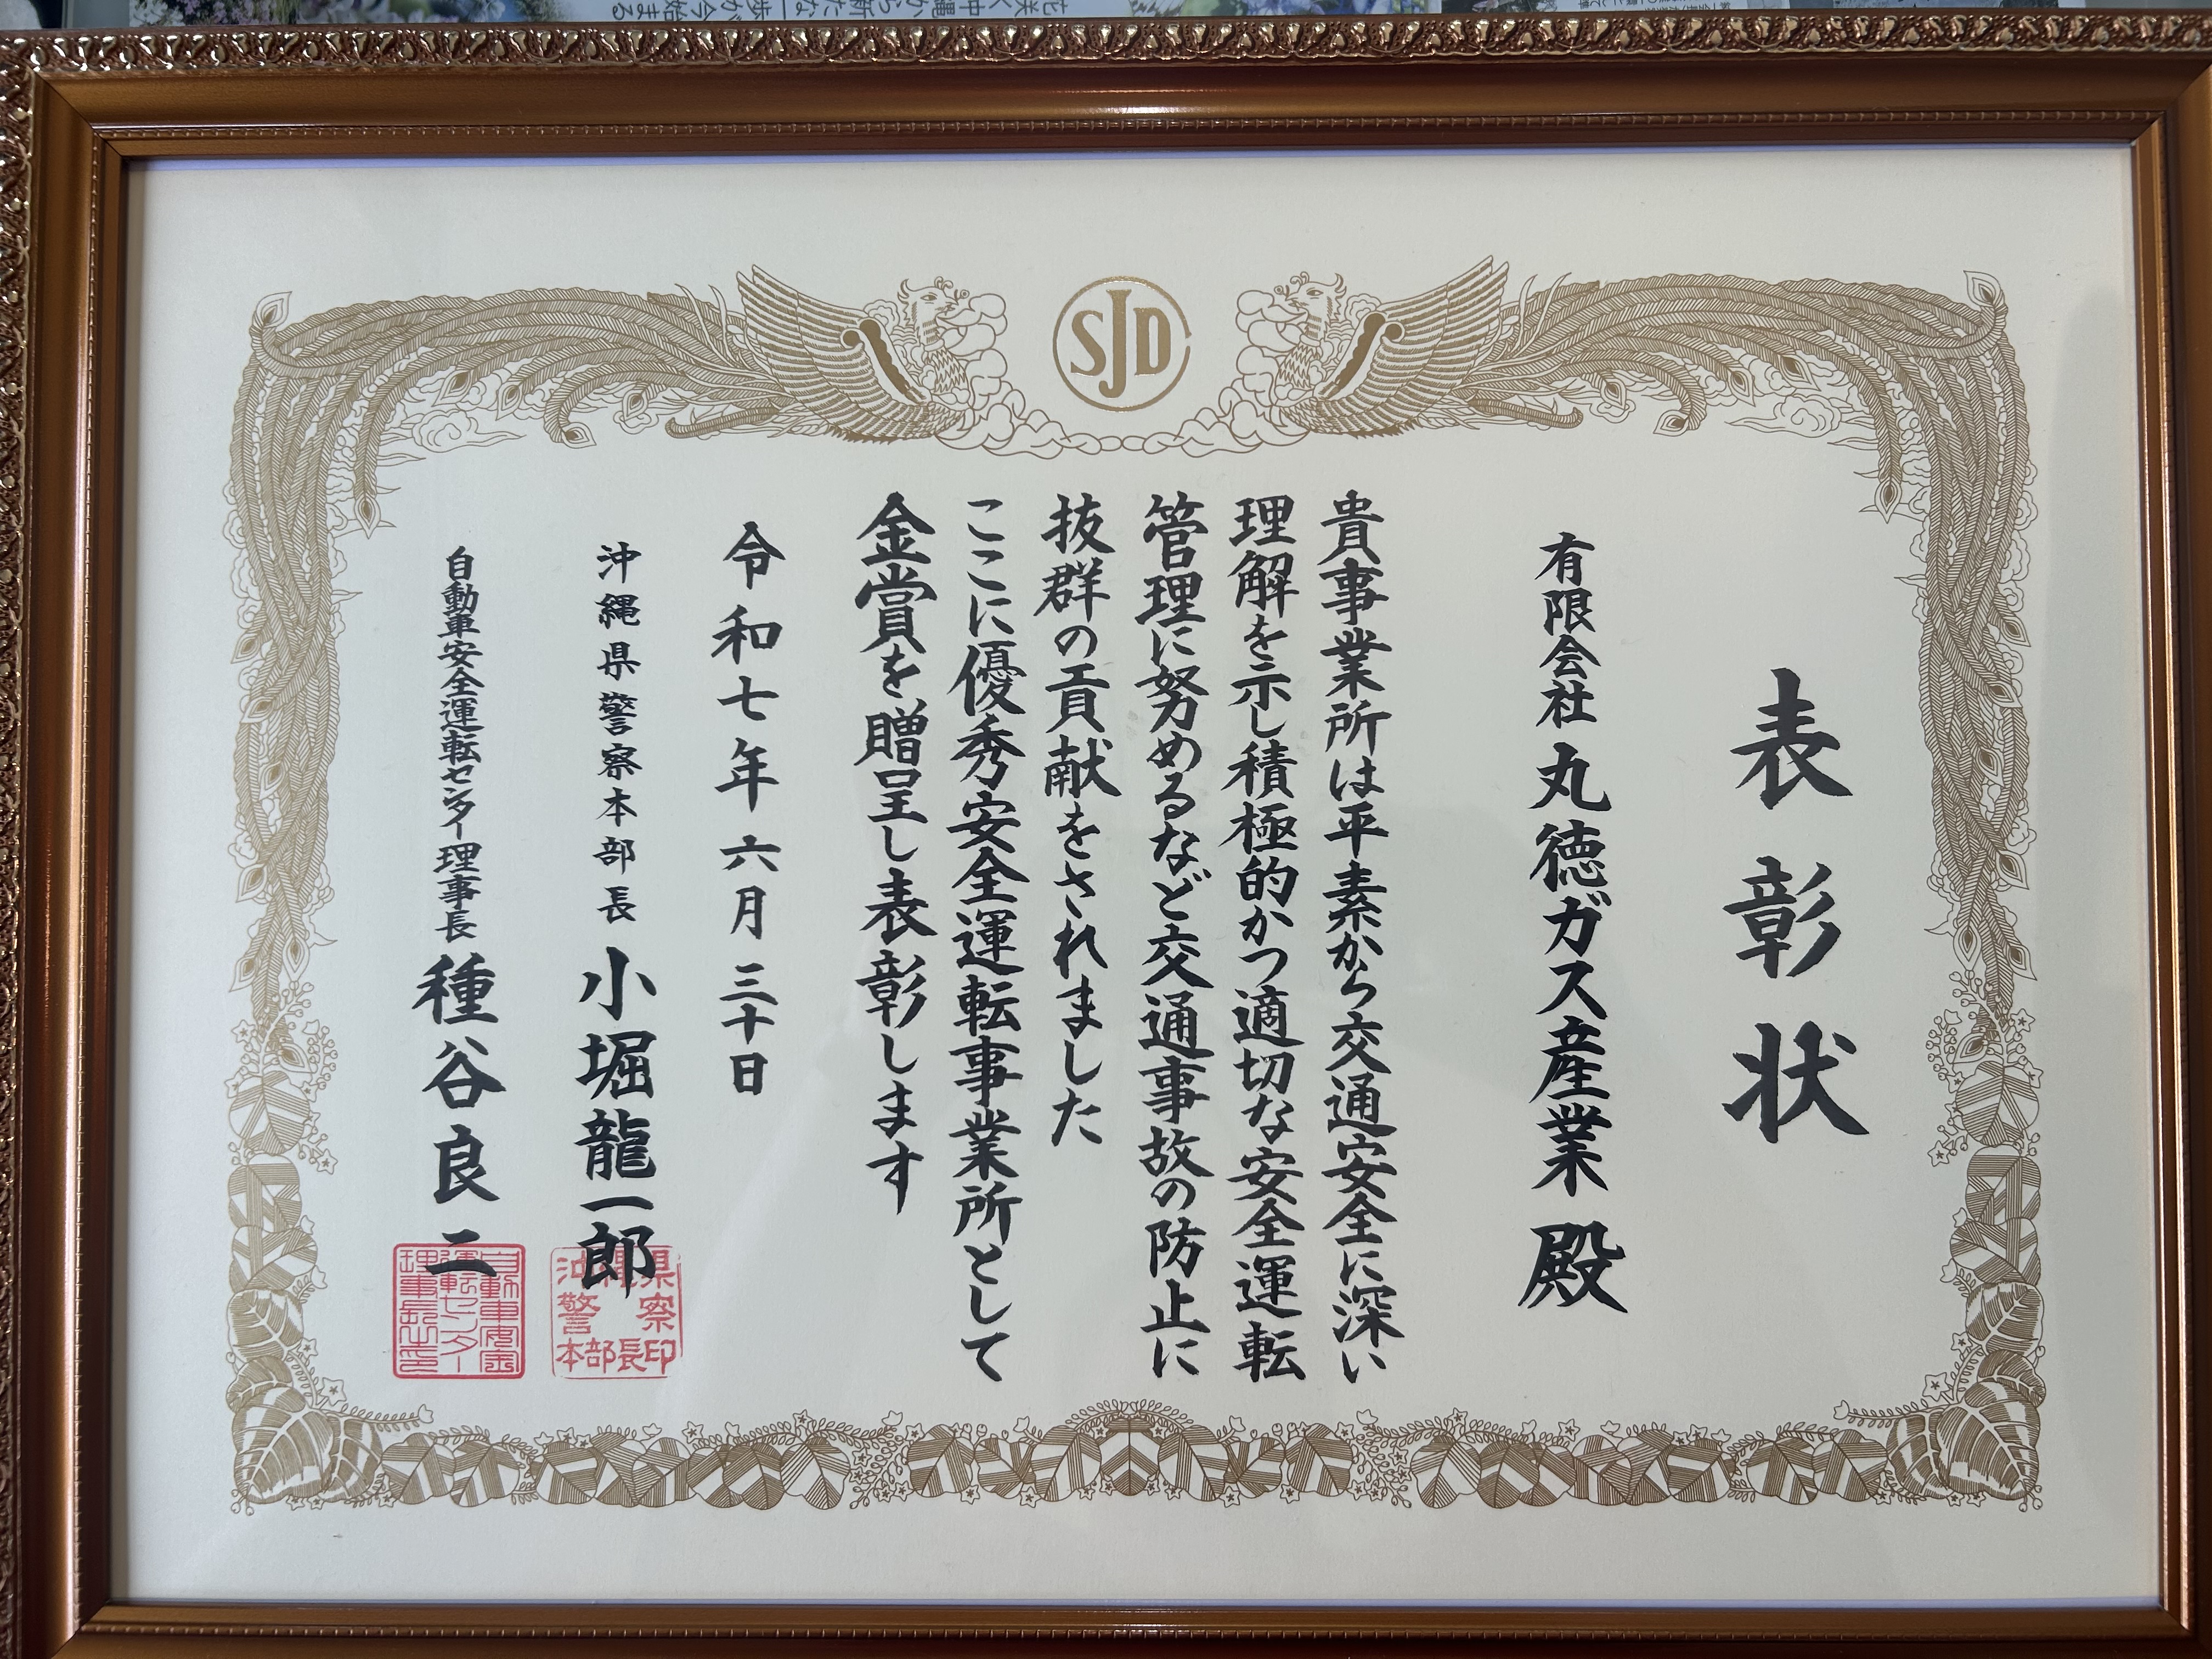 花咲く沖縄から新たな一歩が今始まる
SJD
表彰状
有限会社 丸徳ガス産業 殿
貴事業所は平素から交通安全に深い
理解を示し積極的かつ適切な安全運転
管理に努めるなど交通事故の防止に
抜群の貢献をされました
ここに優秀安全運転事業所として
金賞を贈呈し表彰します
令和七年六月三十日
沖縄県警察本部長 小堀龍一郎
沖縄県警察本部長印
自動車安全運転センター理事長 種谷良二
自動車安全運転センター理事長之印